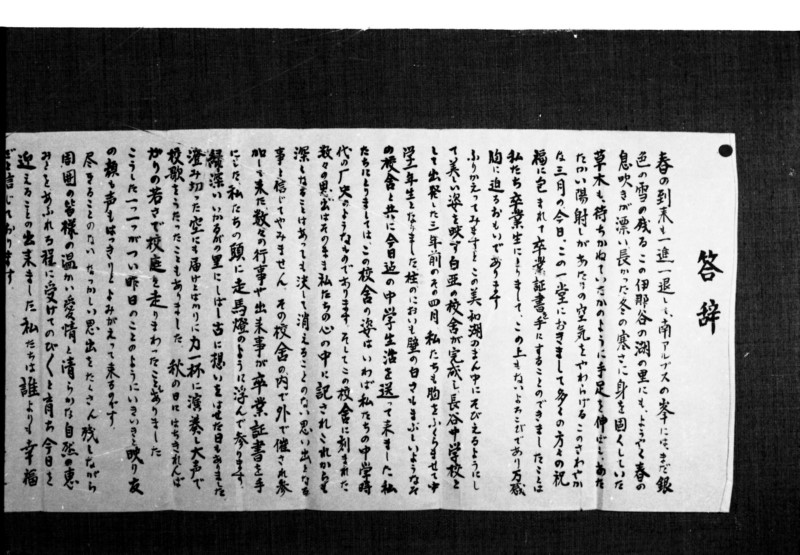 答辞
春の到来も一進一退しても南アルプスの峯々にはまだ銀
色の雪の残るこの伊那谷の湖の里にも、ようやく春の
息吹きが漂い長かった冬の寒さに身を固くしていた
草木も、待ちかねていたかのように手足を伸ばし、あた
たかい陽射しがあたりの空気をやわらげるこのさわやか
な三月の今日、この一堂におきまして多くの方々の祝
福に包まれて卒業証書を手にすることのできましたことは
私たち卒業生にとりまして、この上もないよろこびであり万感
胸に迫るおもいであります
ふりかえってみますとこの美和湖のまん中にそびえるようにし
て美しい姿を映す白亜の校舎が完成し長谷中学校と
して出発した三年前のその四月、私たちも胸をふくらませて中
学一年生となりました 柱のにおいも壁の白さもまぶしいような
の校舎と共に今日迄の中学生活を送って来ました 私
たちにとりましてはこの校舎の姿はいわば私たちの中学時
代の歴史のようなものであります。そしてこの校舎に刻まれた
数々の思出はそのまま私たちの心の中に記されこれからも
深くなることはあっても決して消えることのない思い出となる
事と信じてやみません。その校舎の内で外で催され参
加して来た数々の行事や出来事が卒業証書を手
にした私たちの頭に走馬燈のように浮んで参ります。
緑深いいかるがの里にしばし古に想いをはせた日もありました
澄み切った空にも届けとばかりに力一杯に演奏し大声で
校歌をうたったこともありました 秋の日にはちきれんば
かりの若さで校庭を走りまわったこともありました
こうした一つ一つがつい昨日のことのようにいきいきと映り友
の顔も声もはっきりとよみがえって来るのです。
尽きることのないなつかしい思出をたくさん残しながら
周囲の皆様の温かい愛情と清らかな自然の恵
みとをあふれる程に受けてのびのびと育ち今日を
迎えることの出来ました私たちは誰よりも幸福
だと信じております